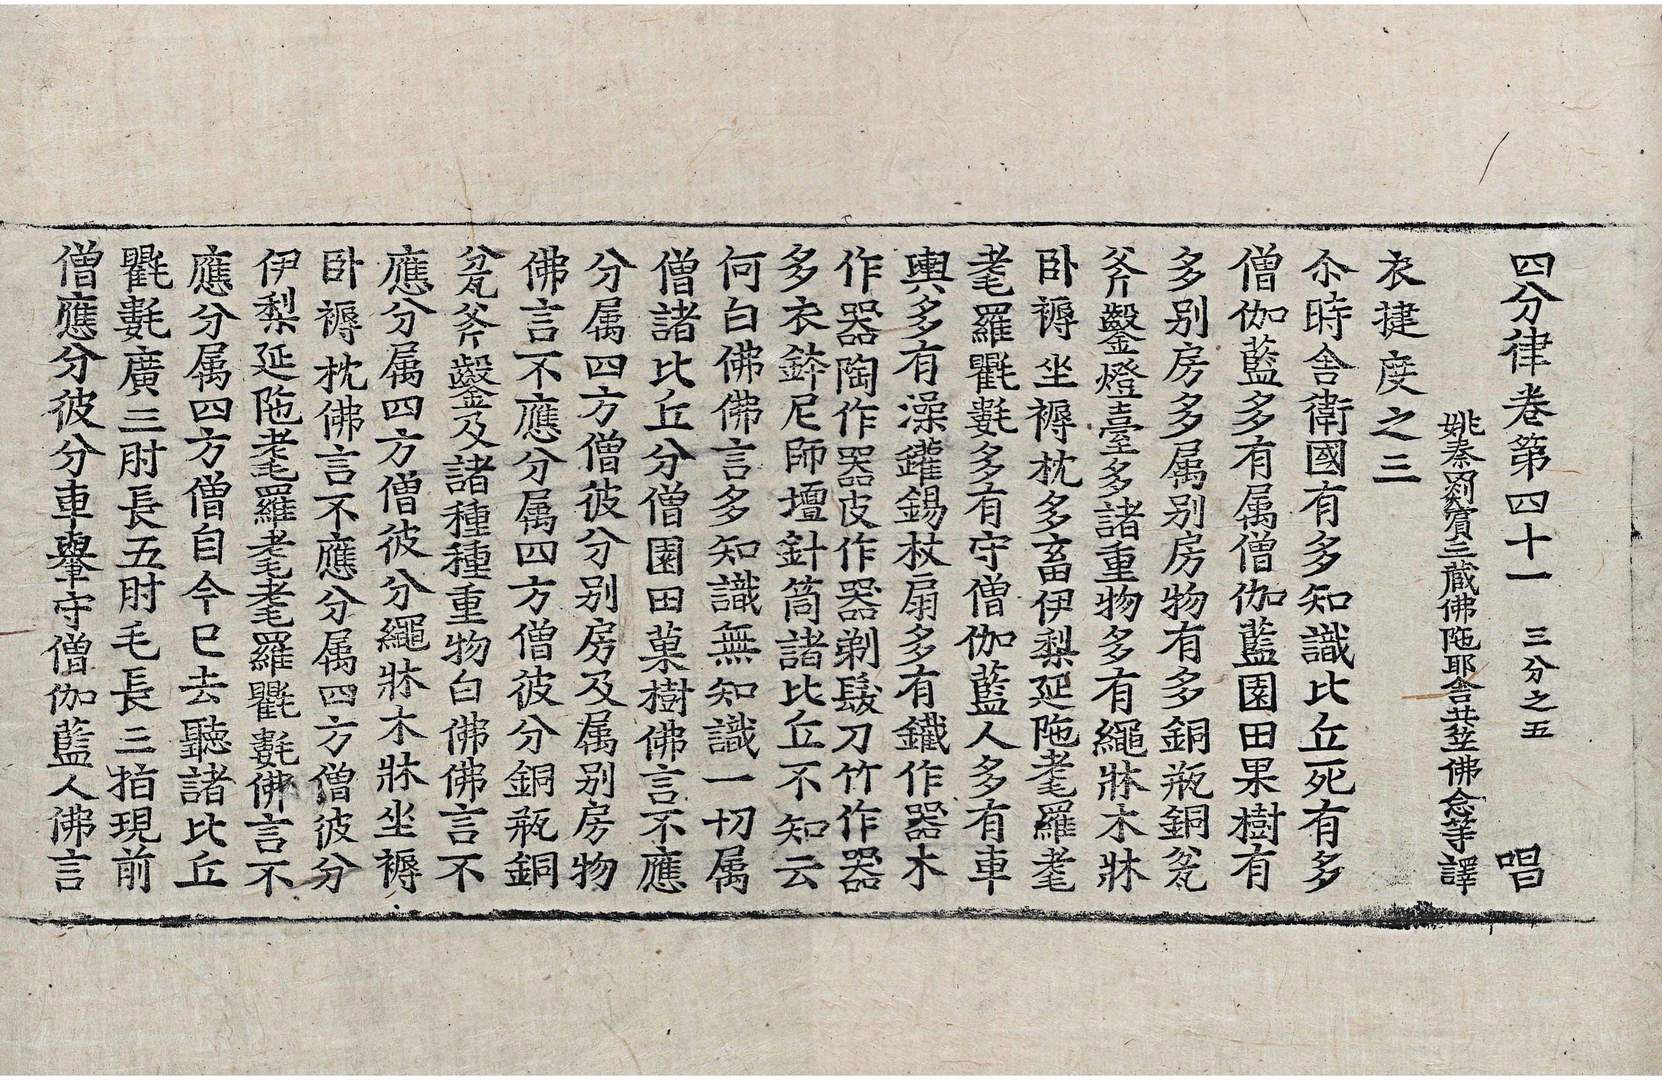 四分律卷第四十一 三分之五 唱
姚秦罽賓三藏佛陁耶舍共竺佛念等譯
衣揵度之三
尒時舍衛國有多知識比丘死有多
僧伽藍多有属僧伽藍園田果樹有
多別房多属別房物有多銅瓶銅瓫
斧斤鑿燈臺多諸重物多有繩牀木牀
卧褥坐褥枕多畜伊梨延陁耄羅耄
耄羅氍㲣多有守僧伽藍人多有車
輿多有澡鑵錫杖扇多有鐵作器木
作器陶作器皮作器剃髮刀竹作器
多衣鉢尼師壇針筒諸比丘不知云
何白佛佛言多知識無知識一切属
僧諸比丘分僧園田菓樹佛言不應
分属四方僧彼分別房及属別房物
佛言不應分属四方僧彼分銅瓶銅
瓫斧斤鑿及諸種種重物白佛佛言不
應分属四方僧彼分繩牀木牀坐褥
卧褥枕佛言不應分属四方僧彼分
伊梨延陁耄羅耄耄羅氍㲣佛言不
應分属四方僧自今已去聽諸比丘
氍㲣廣三肘長五肘毛長三指現前
僧應分彼分車轝守僧伽藍人佛言